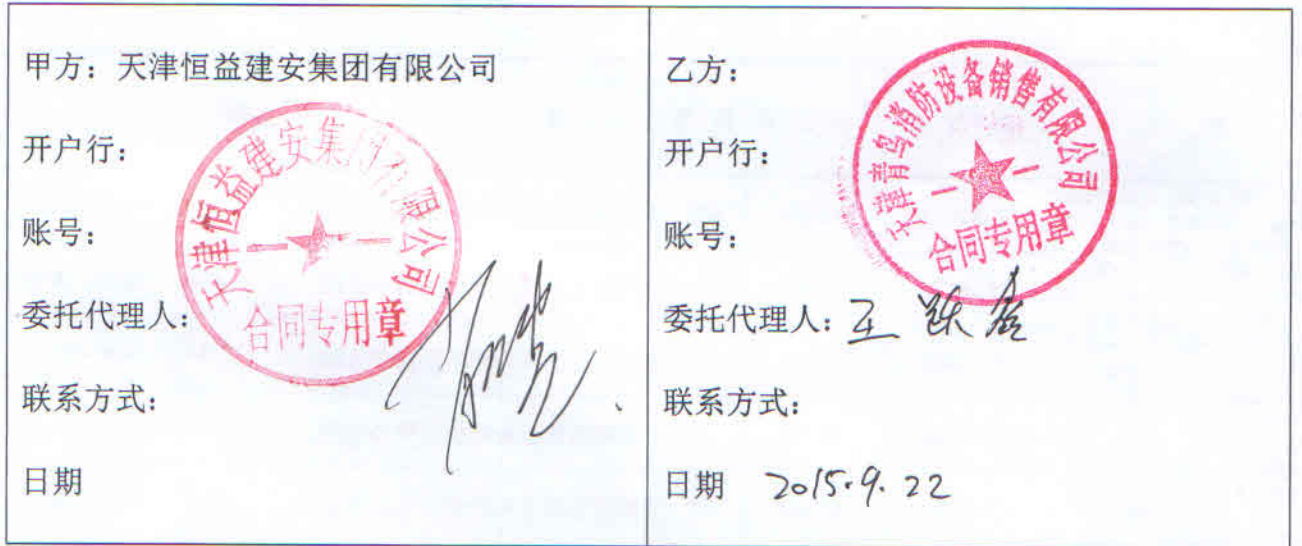 甲方：天津恒益建安集团有限公司
开户行：
账号：
委托代理人：
联系方式：
日期
天津恒益建安集团有限公司
合同专用章
乙方：
开户行：
账号：
委托代理人：王跃
联系方式：
日期 2015.9.22
天津青鸟消防设备销售有限公司
合同专用章